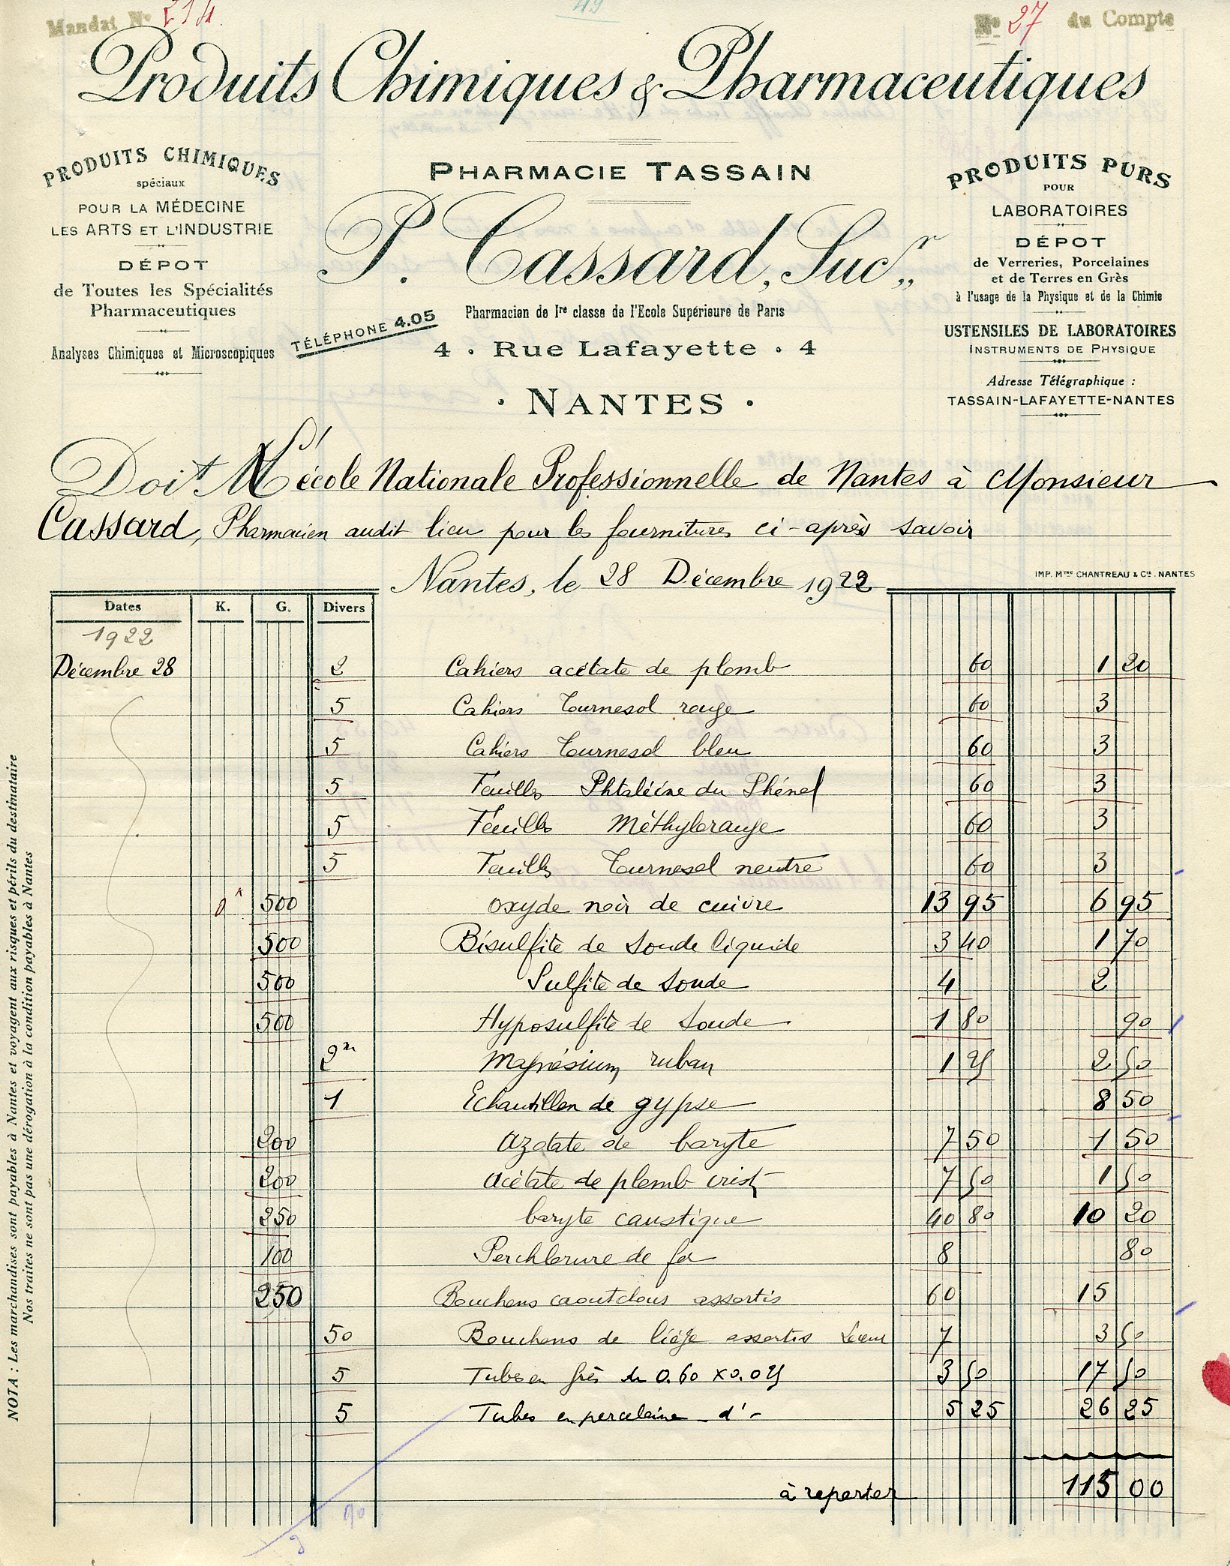 Mandat No 214
49
No 27 du Compte
Produits Chimiques & Pharmaceutiques
PRODUITS CHIMIQUES
spéciaux
POUR LA MÉDECINE
LES ARTS ET L'INDUSTRIE
DÉPOT
de Toutes les Spécialités
Pharmaceutiques
Analyses Chimiques et Microscopiques
PHARMACIE TASSAIN
P. Cassard, Sucr
Pharmacien de Ire classe de l'Ecole Supérieure de Paris
TÉLÉPHONE 4.05
4 . Rue Lafayette . 4
. NANTES .
PRODUITS PURS
POUR
LABORATOIRES
DÉPOT
de Verreries, Porcelaines
et de Terres en Grès
à l'usage de la Physique et de la Chimie
USTENSILES DE LABORATOIRES
INSTRUMENTS DE PHYSIQUE
Adresse Télégraphique :
TASSAIN-LAFAYETTE-NANTES
Doit M l'école Nationale Professionnelle de Nantes à Monsieur
Cassard, Pharmacien audit lieu pour les fournitures ci-après savoir
Nantes, le 28 Décembre 1922
IMP. Mme CHANTREAU & Cie. NANTES
Dates K. G. Divers
1922
Décembre 28 2 Cahiers acétate de plomb 60 1 20
5 Cahiers Tournesol rouge 60 3
5 Cahiers Tournesol bleu 60 3
5 Feuilles Phtaléine du Phénol 60 3
5 Feuilles Méthylorange 60 3
5 Feuilles Tournesol neutre 60 3
0k 500 oxyde noir de cuivre 13 95 6 95
500 Bisulfite de soude liquide 3 40 1 70
500 Sulfite de soude 4 2
500 Hyposulfite de soude 1 80 90
2m Magnésium ruban 1 25 2 50
1 Echantillon de gypse 8 50
200 Azotate de baryte 7 50 1 50
200 Acétate de plomb crist 7 50 1 50
250 baryte caustique 40 80 10 20
100 Perchlorure de fer 8 80
250 Bouchons caoutchous assortis 60 15
50 Bouchons de liège assortis 7 3 50
5 Tubes en grès de 0.60 x 0.025 3 50 17 50
5 Tubes en porcelaine d° 5 25 26 25
à reporter 115 00
NOTA : Les marchandises sont payables à Nantes et voyagent aux risques et périls du destinataire
Nos traites ne sont pas une dérogation à la condition payables à Nantes